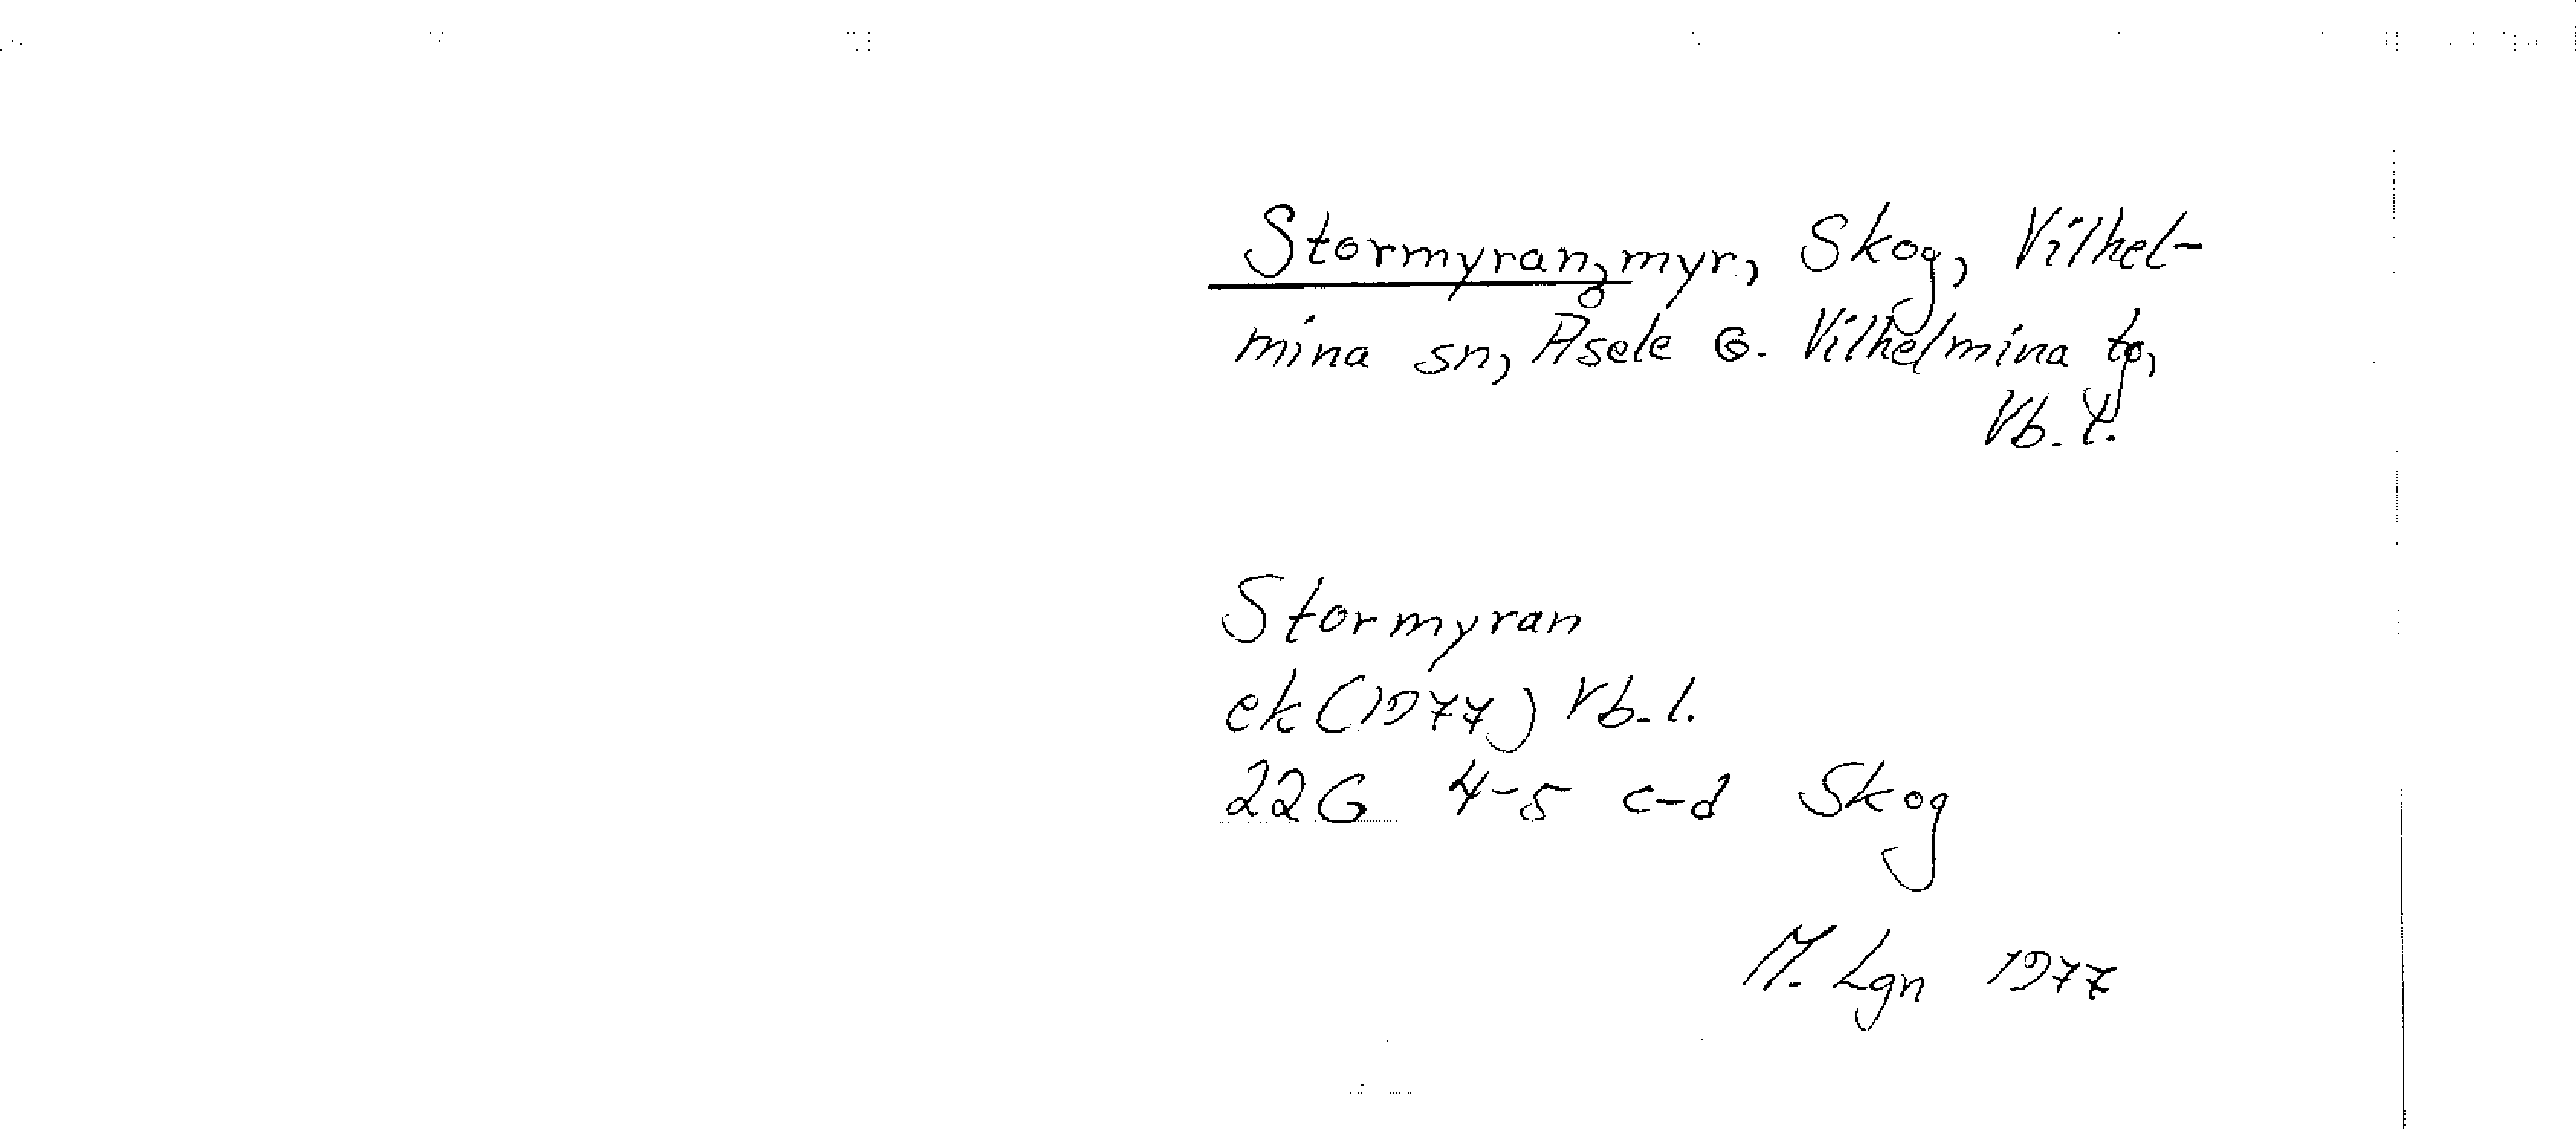 Stormyran, myr, Skog, Vilhel-
mina sn, Åsele o. Vilhelmina tg,
Vb. l.
Stormyran
ek (1977) Vb. l.
22G 4-5 c-d Skog
M. Lgn 1977